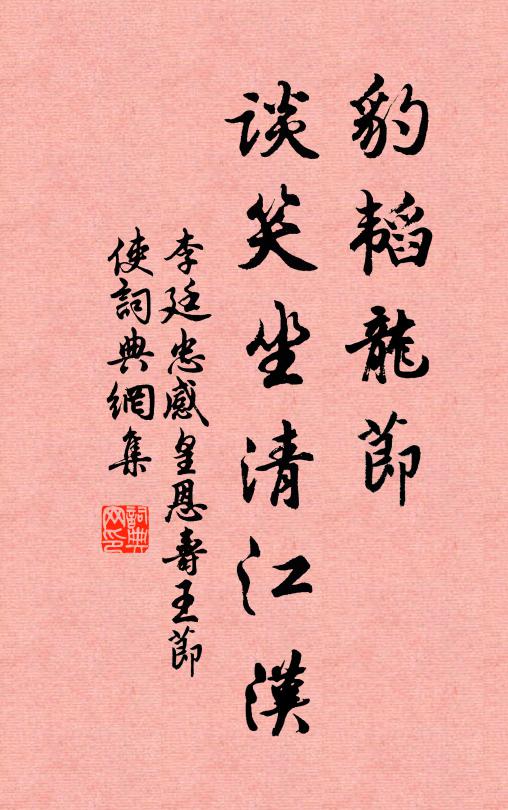 豹韬龍節
談笑坐清江漢
李廷忠感皇恩壽王節
使詞典網集
詞典
网印